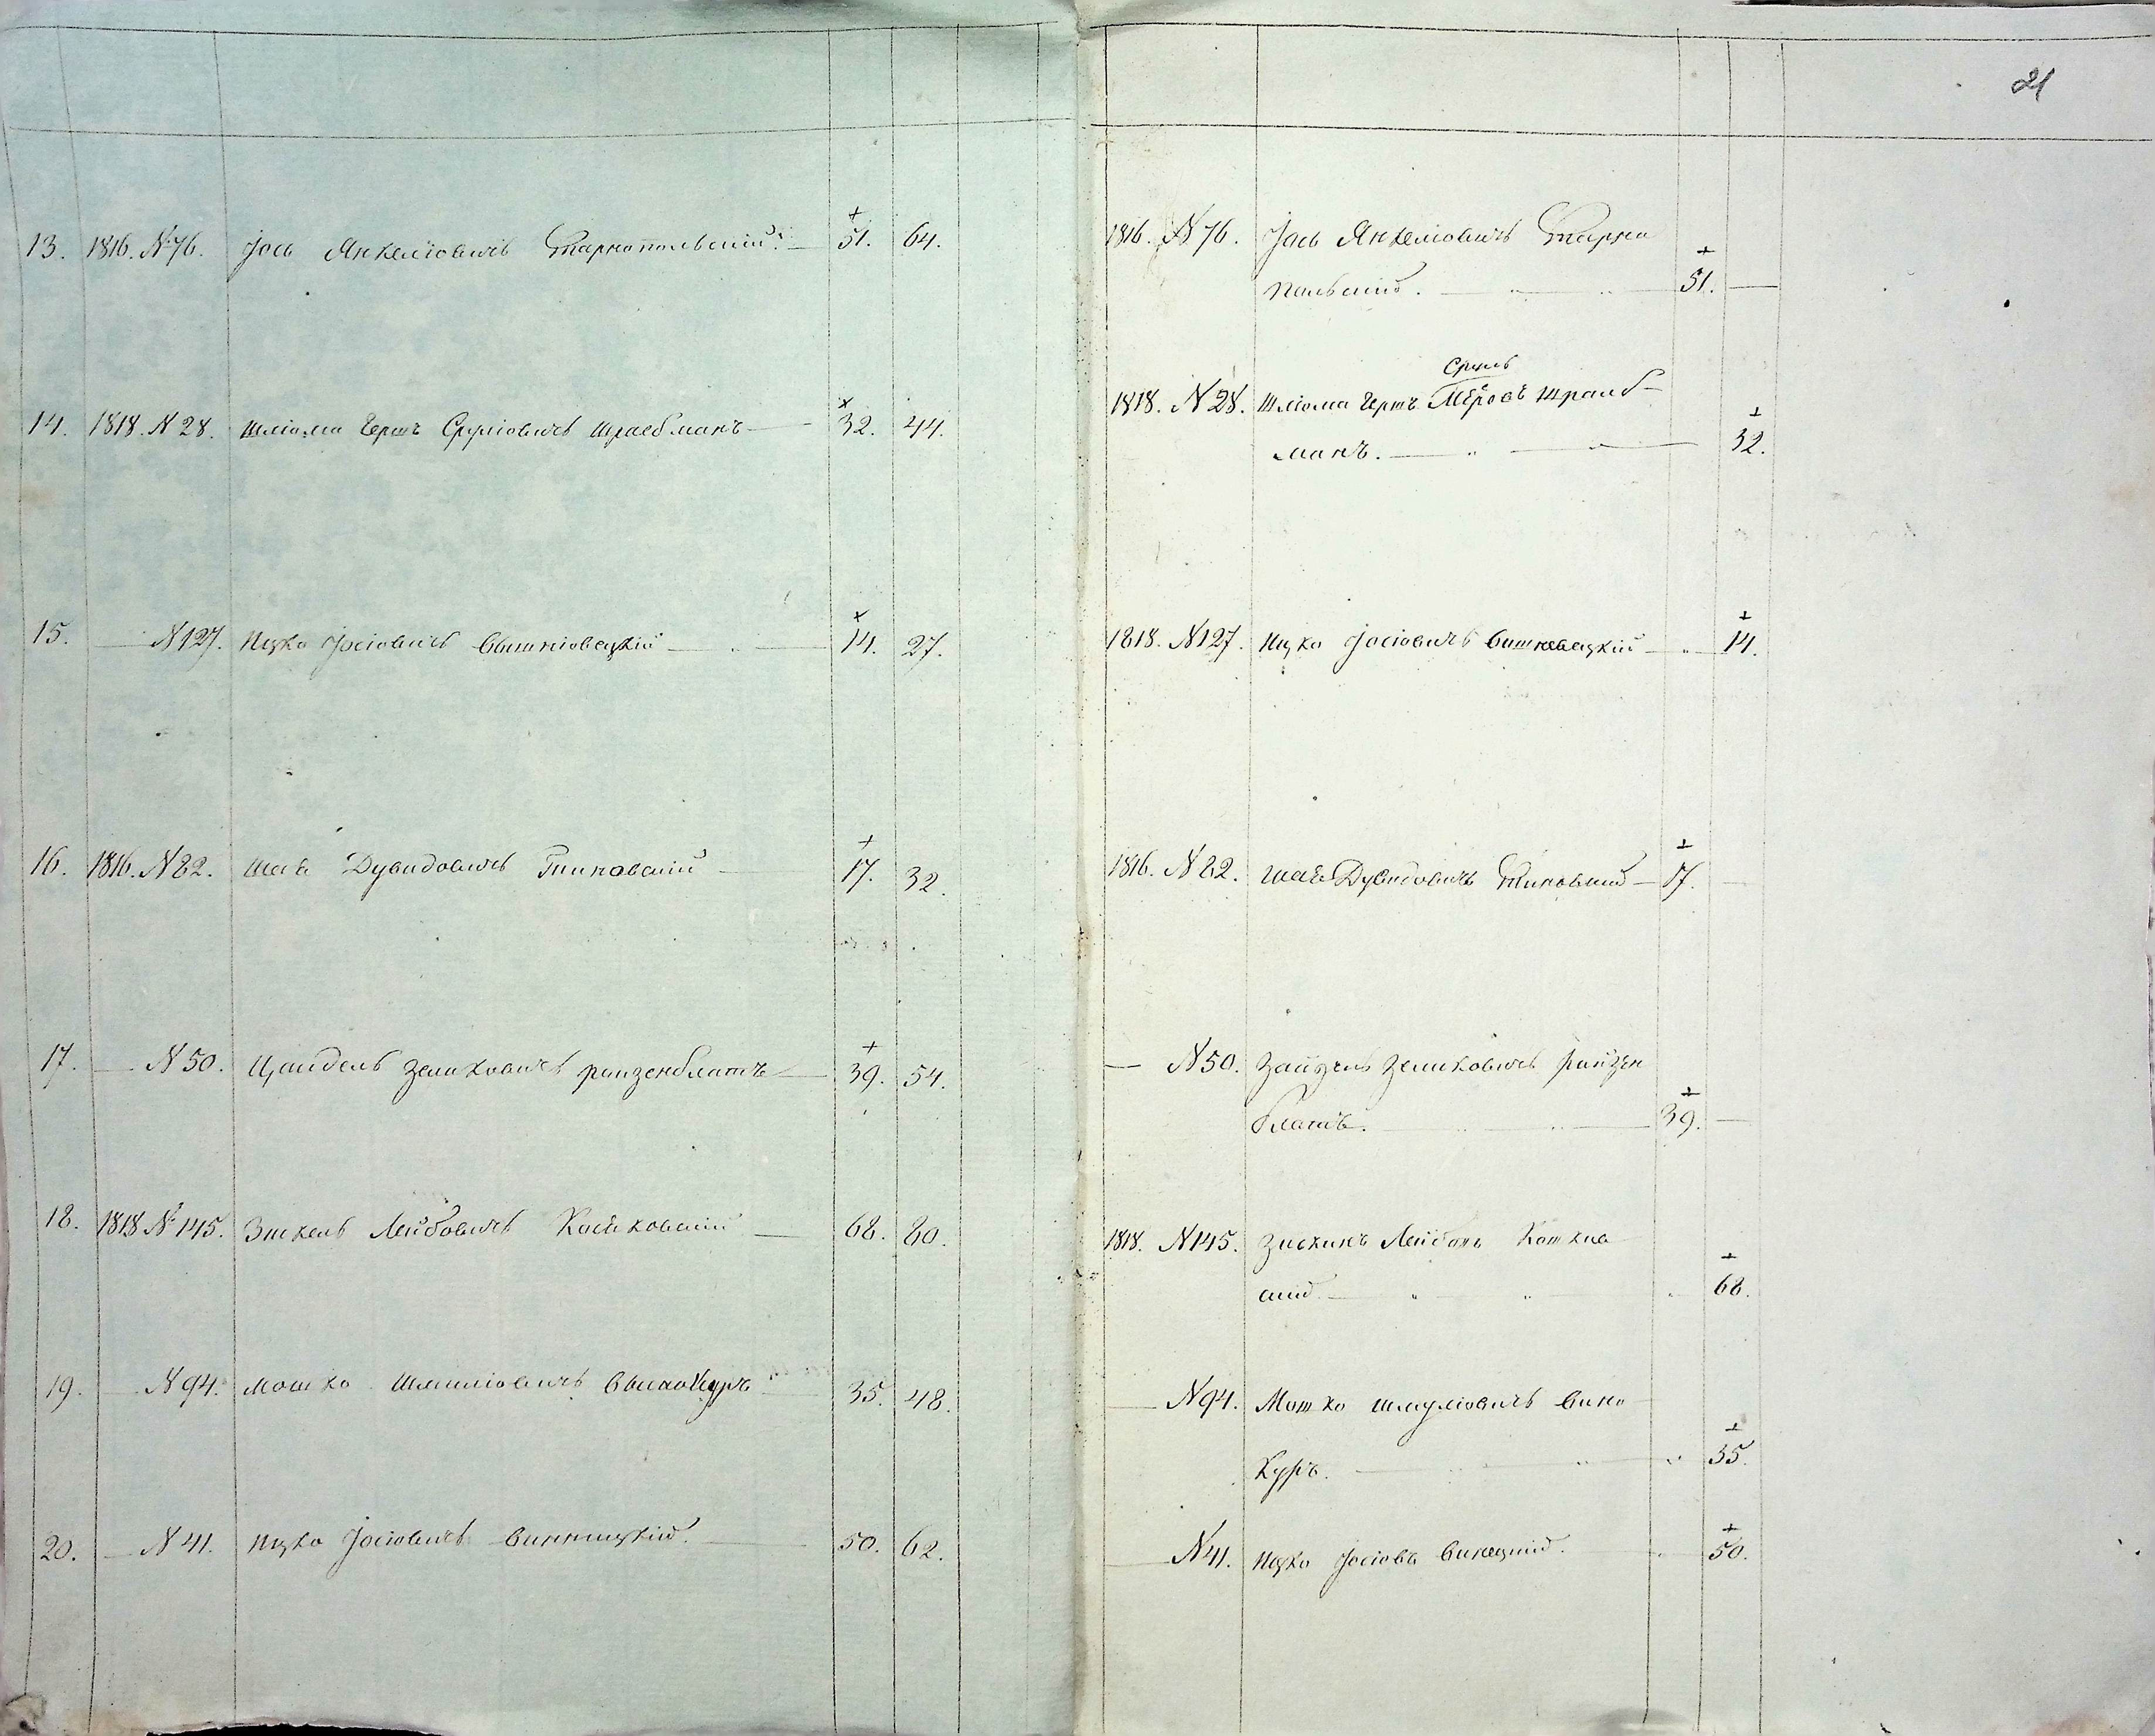 21
13. 1816. №76. Іось Янкелiовичъ Тарнопольскій. 51. 64.
14. 1818. №28. Шліома Герш Срулiовичъ Шраебманъ 32. 44.
15. — №127. Ицко Іосіовичъ Вышніовецкій 14. 27.
16. 1816. №82. Шая Дувидовичъ 17. 32.
17. — №50. Цайдель Зеликовичъ Райзенблатъ 39. 54.
18. 1818 №145. Зискель Лейбовичъ 68. 80.
19. — №94. Мошко Шмиліовичъ Винокуръ 35. 48.
20. — №41. Ицко Іосіовичъ Винницкій. 50. 62.
1816. №76. Іось Янкеліовичъ Тарно
польскій. 51. —
Сруль
1818. №28. Шліома Герш Шраиб-
манъ. 32.
1818. №127. Ицко Іосіовичъ Вишневецкій 14.
1816. №82. Шая Дувидовичъ 17. —
— №50. Зайдель Зеликовичъ Райзен
блатъ. 39. —
1818. №145. Зискинъ
скій 68.
— №94. Мошко Шмуліовичъ Вино
куръ. 35.
— №41. Ицко Іосіовъ Винецкій. 50.